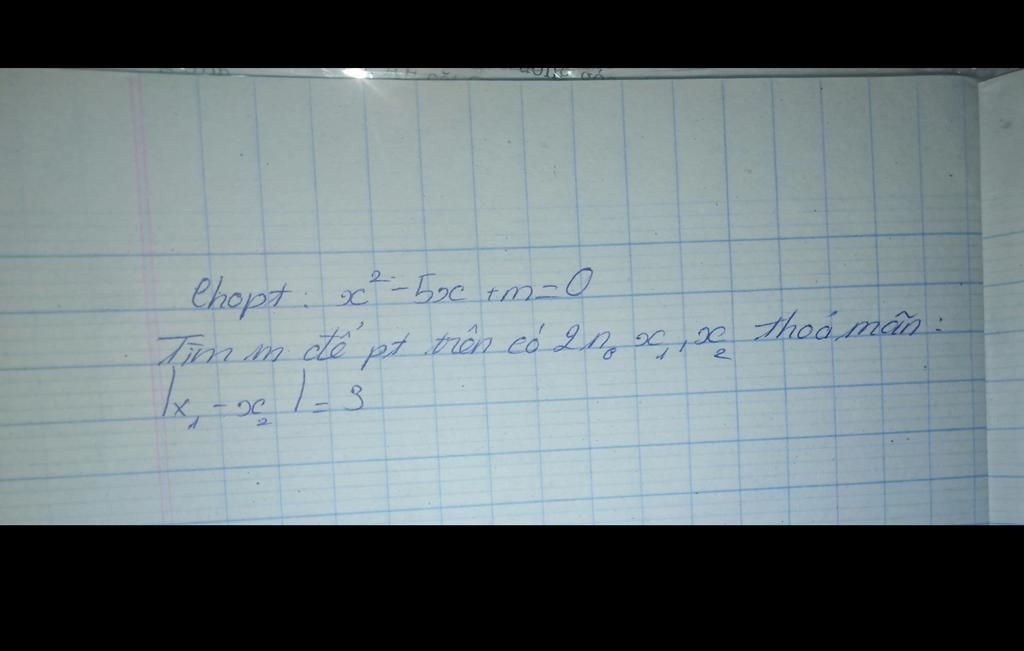 Cho pt: x² - 5x + m = 0
Tìm m để pt trên có 2 n₀ x₁, x₂ thoả mãn:
|x₁ - x₂| = 3